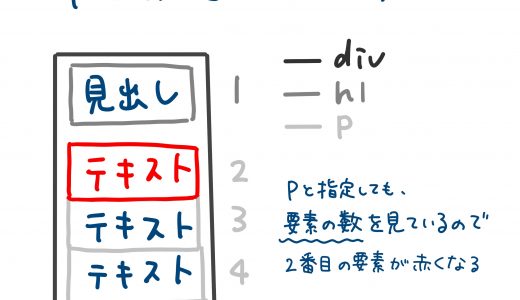 見出し 1
テキスト 2
テキスト 3
テキスト 4
div
h1
p
Pと指定しても、
要素の数を見ているので
2番目の要素が赤くなる